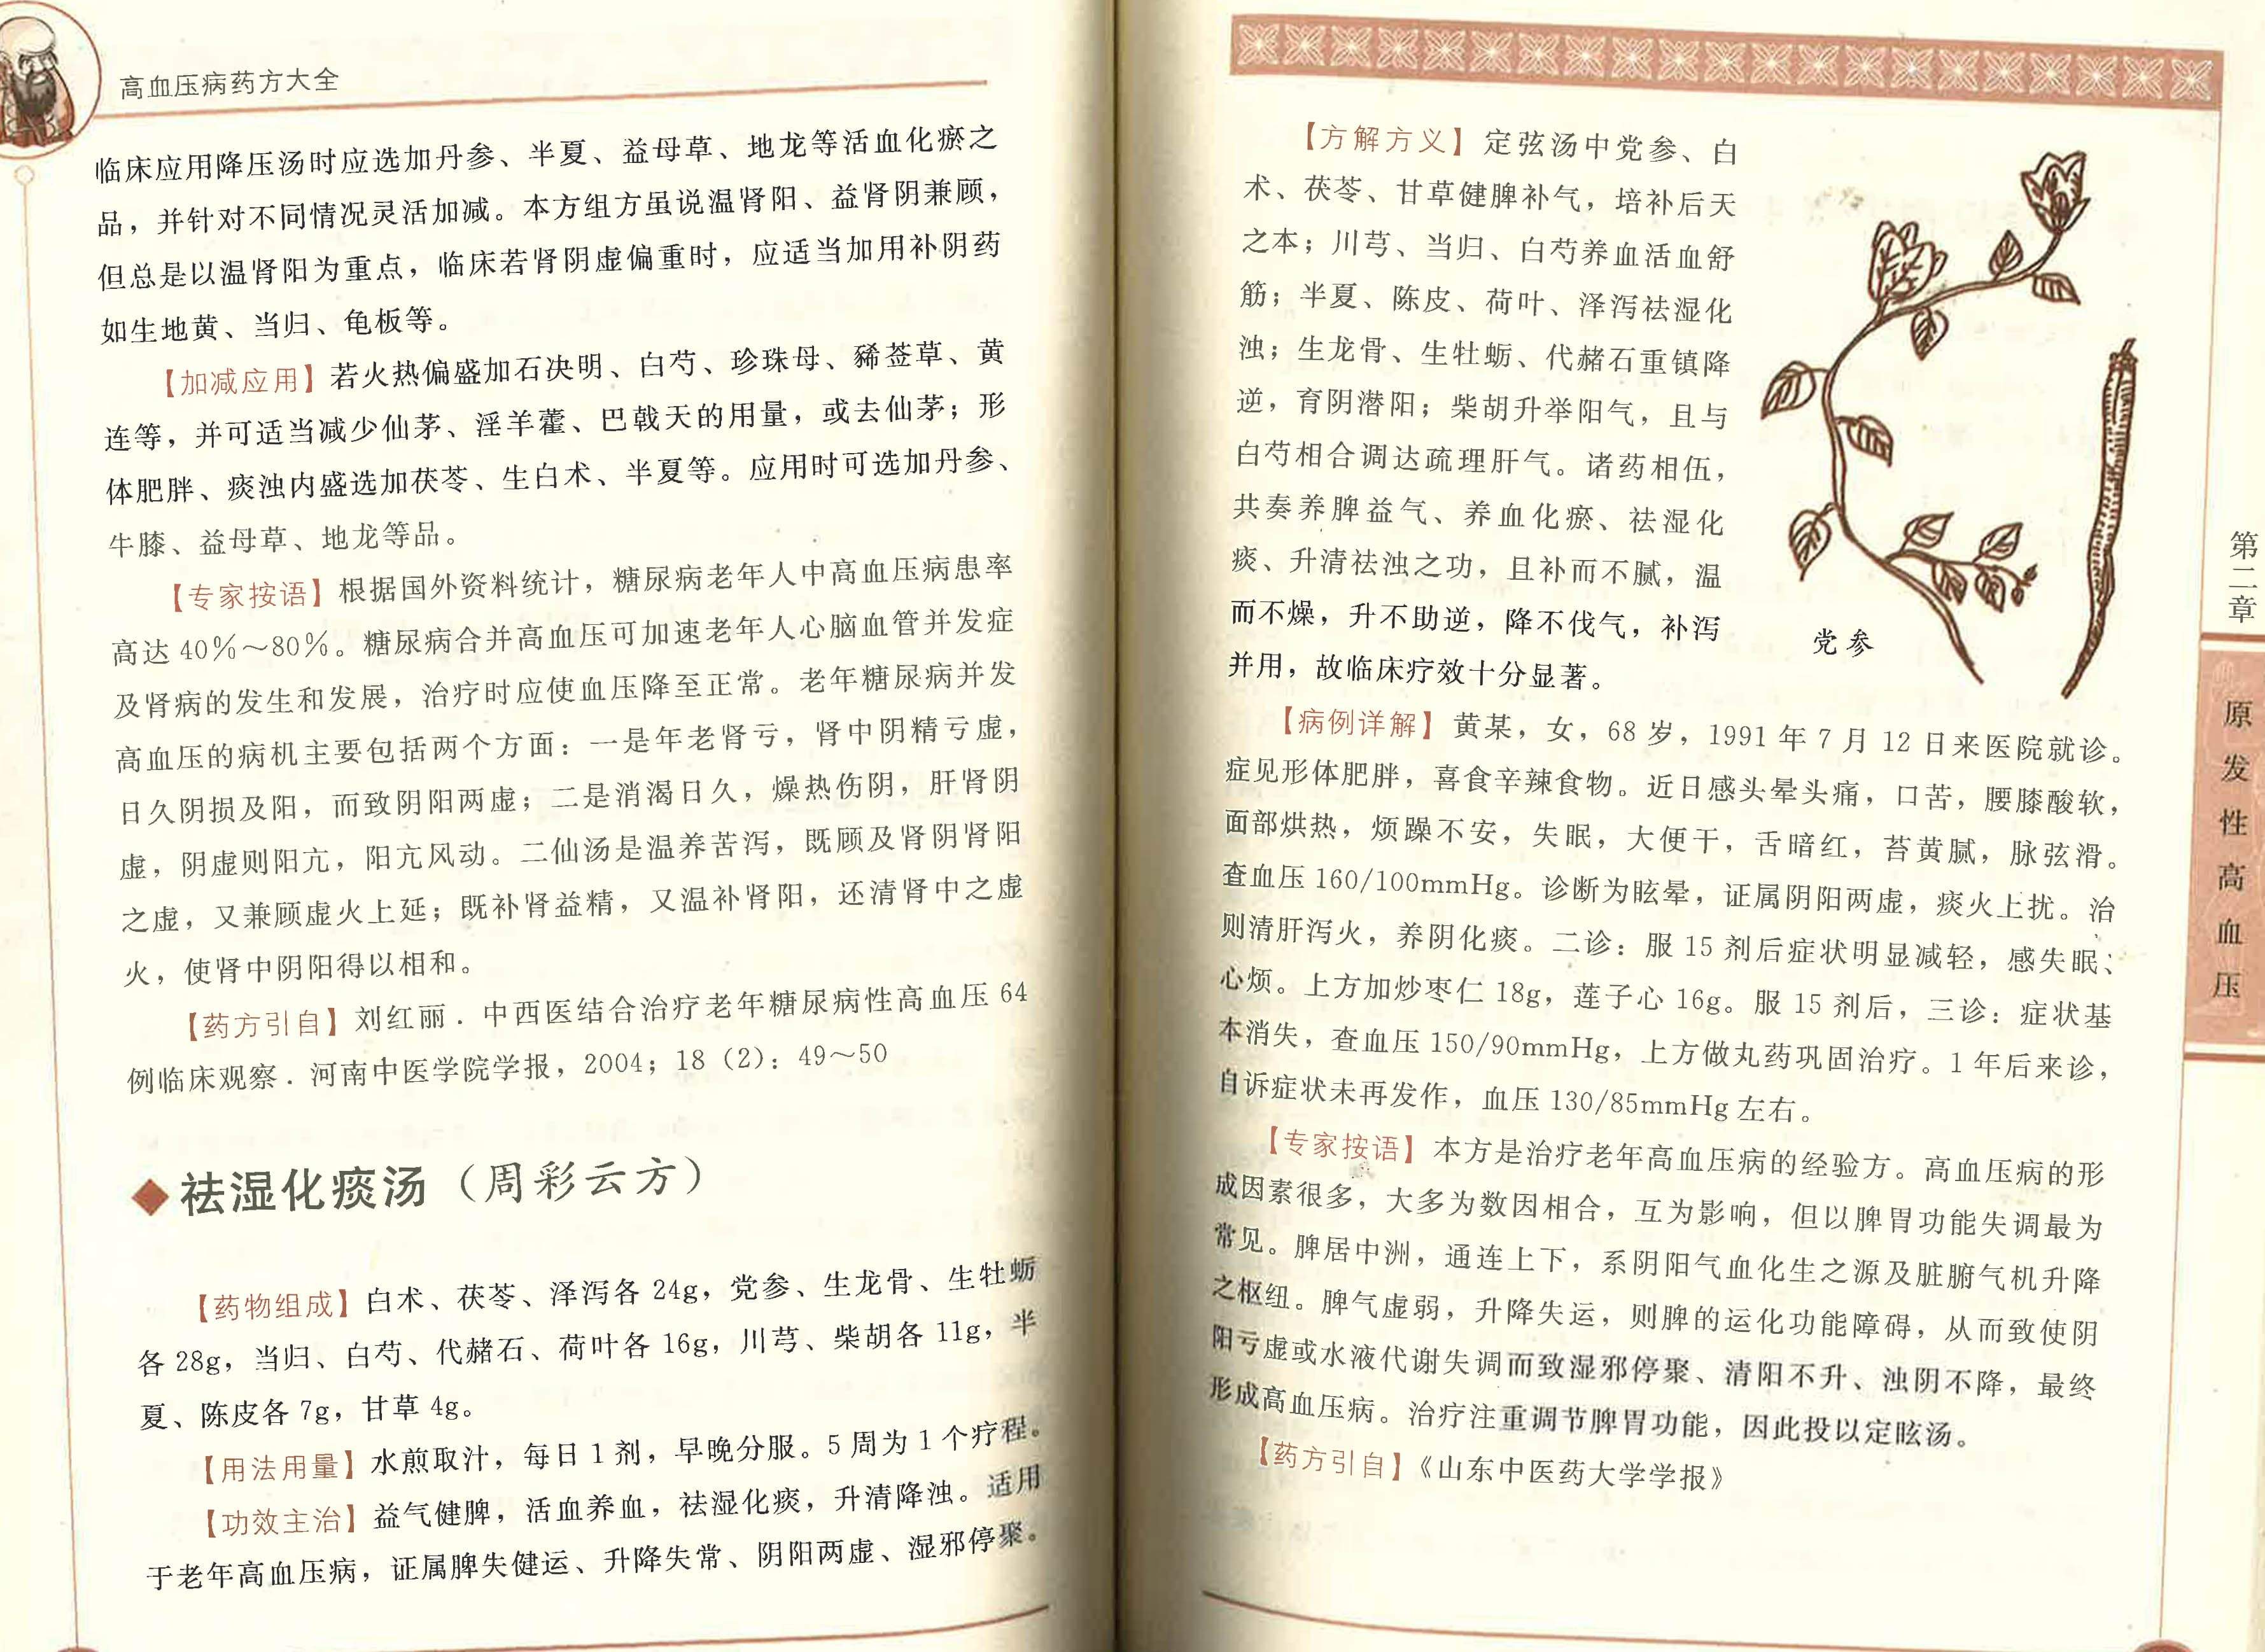 高血压病药方大全
临床应用降压汤时应选加丹参、半夏、益母草、地龙等活血化瘀之
品，并针对不同情况灵活加减。本方组方虽说温肾阳、益肾阴兼顾，
但总是以温肾阳为重点，临床若肾阴虚偏重时，应适当加用补阴药
如生地黄、当归、龟板等。
【加减应用】若火热偏盛加石决明、白芍、珍珠母、豨莶草、黄
连等，并可适当减少仙茅、淫羊藿、巴戟天的用量，或去仙茅；形
体肥胖、痰浊内盛选加茯苓、生白术、半夏等。应用时可选加丹参、
牛膝、益母草、地龙等品。
【专家按语】根据国外资料统计，糖尿病老年人中高血压病患率
高达 40％～80％。糖尿病合并高血压可加速老年人心脑血管并发症
及肾病的发生和发展，治疗时应使血压降至正常。老年糖尿病并发
高血压的病机主要包括两个方面：一是年老肾亏，肾中阴精亏虚，
日久阴损及阳，而致阴阳两虚；二是消渴日久，燥热伤阴，肝肾阴
虚，阴虚则阳亢，阳亢风动。二仙汤是温养苦泻，既顾及肾阴肾阳
之虚，又兼顾虚火上延；既补肾益精，又温补肾阳，还清肾中之虚
火，使肾中阴阳得以相和。
【药方引自】刘红丽．中西医结合治疗老年糖尿病性高血压 64
例临床观察．河南中医学院学报，2004；18（2）：49～50
◆祛湿化痰汤（周彩云方）
【药物组成】白术、茯苓、泽泻各 24g，党参、生龙骨、生牡蛎
各 28g，当归、白芍、代赭石、荷叶各 16g，川芎、柴胡各 11g，半
夏、陈皮各 7g，甘草 4g。
【用法用量】水煎取汁，每日 1 剂，早晚分服。5 周为 1 个疗程。
【功效主治】益气健脾，活血养血，祛湿化痰，升清降浊。适用
于老年高血压病，证属脾失健运、升降失常、阴阳两虚、湿邪停聚。
【方解方义】定弦汤中党参、白
术、茯苓、甘草健脾补气，培补后天
之本；川芎、当归、白芍养血活血舒
筋；半夏、陈皮、荷叶、泽泻祛湿化
浊；生龙骨、生牡蛎、代赭石重镇降
逆，育阴潜阳；柴胡升举阳气，且与
白芍相合调达疏理肝气。诸药相伍，
共奏养脾益气、养血化瘀、祛湿化
痰、升清祛浊之功，且补而不腻，温
而不燥，升不助逆，降不伐气，补泻
并用，故临床疗效十分显著。
党参
【病例详解】黄某，女，68 岁，1991 年 7 月 12 日来医院就诊。
症见形体肥胖，喜食辛辣食物。近日感头晕头痛，口苦，腰膝酸软，
面部烘热，烦躁不安，失眠，大便干，舌暗红，苔黄腻，脉弦滑。
查血压 160/100mmHg。诊断为眩晕，证属阴阳两虚，痰火上扰。治
则清肝泻火，养阴化痰。二诊：服 15 剂后症状明显减轻，感失眠、
心烦。上方加炒枣仁 18g，莲子心 16g。服 15 剂后，三诊：症状基
本消失，查血压 150/90mmHg，上方做丸药巩固治疗。1 年后来诊，
自诉症状未再发作，血压 130/85mmHg 左右。
【专家按语】本方是治疗老年高血压病的经验方。高血压病的形
成因素很多，大多为数因相合，互为影响，但以脾胃功能失调最为
常见。脾居中洲，通连上下，系阴阳气血化生之源及脏腑气机升降
之枢纽。脾气虚弱，升降失运，则脾的运化功能障碍，从而致使阴
阳亏虚或水液代谢失调而致湿邪停聚、清阳不升、浊阴不降，最终
形成高血压病。治疗注重调节脾胃功能，因此投以定眩汤。
【药方引自】《山东中医药大学学报》
第二章
原发性高血压